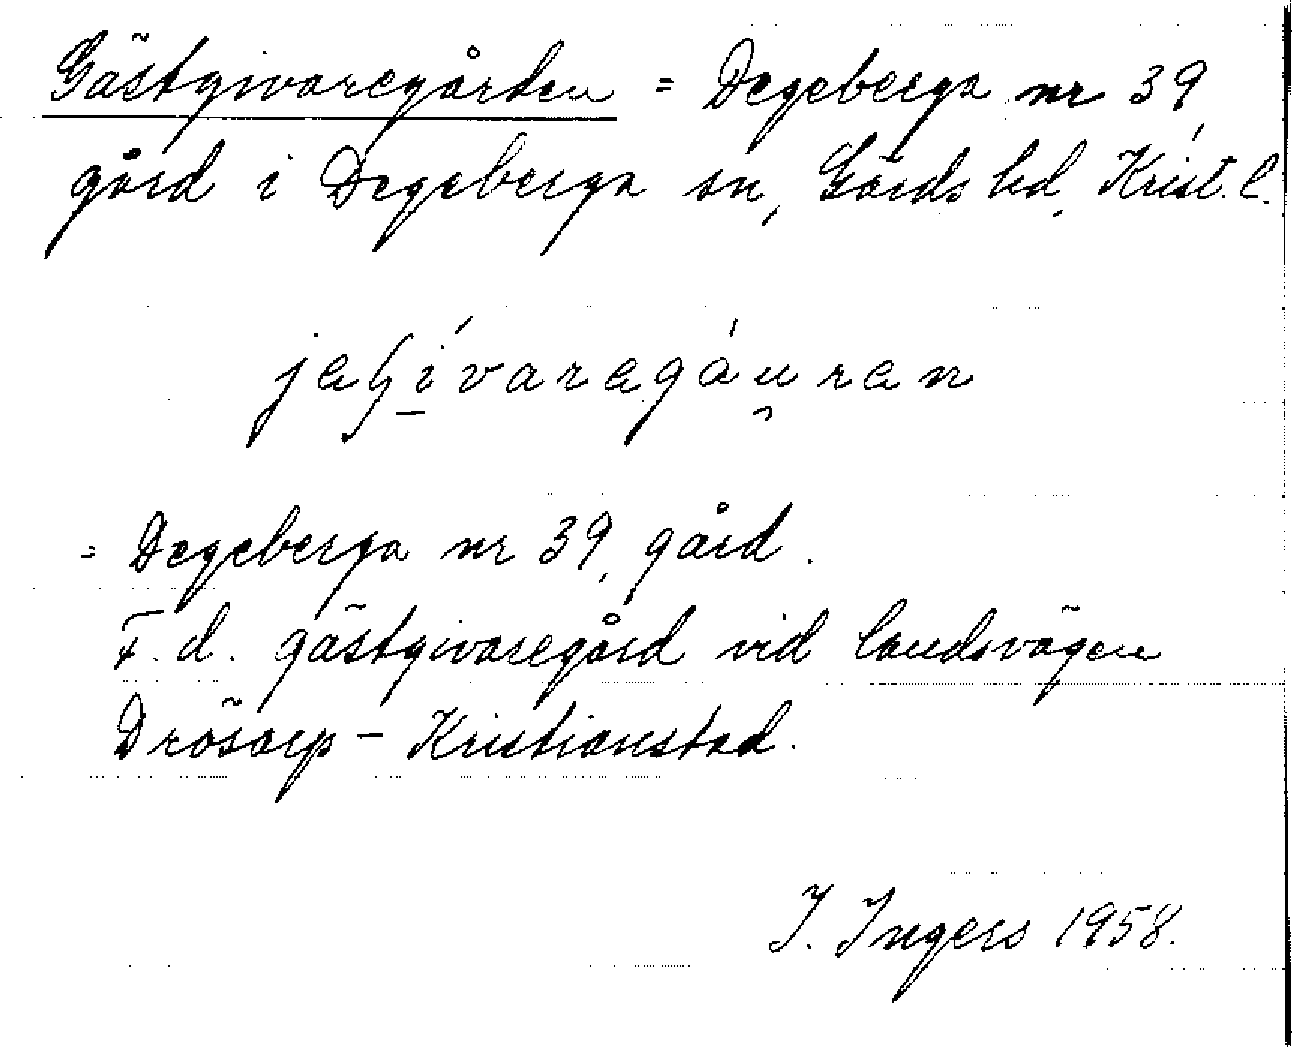 Gästgivaregården = Degeberga nr 39,
gård i Degeberga sn, Gärds hd, Krist. l.
= Degeberga nr 39, gård.
F. d. gästgivaregård vid landsvägen
Drösarp - Kristianstad.
I. Ingers 1958.